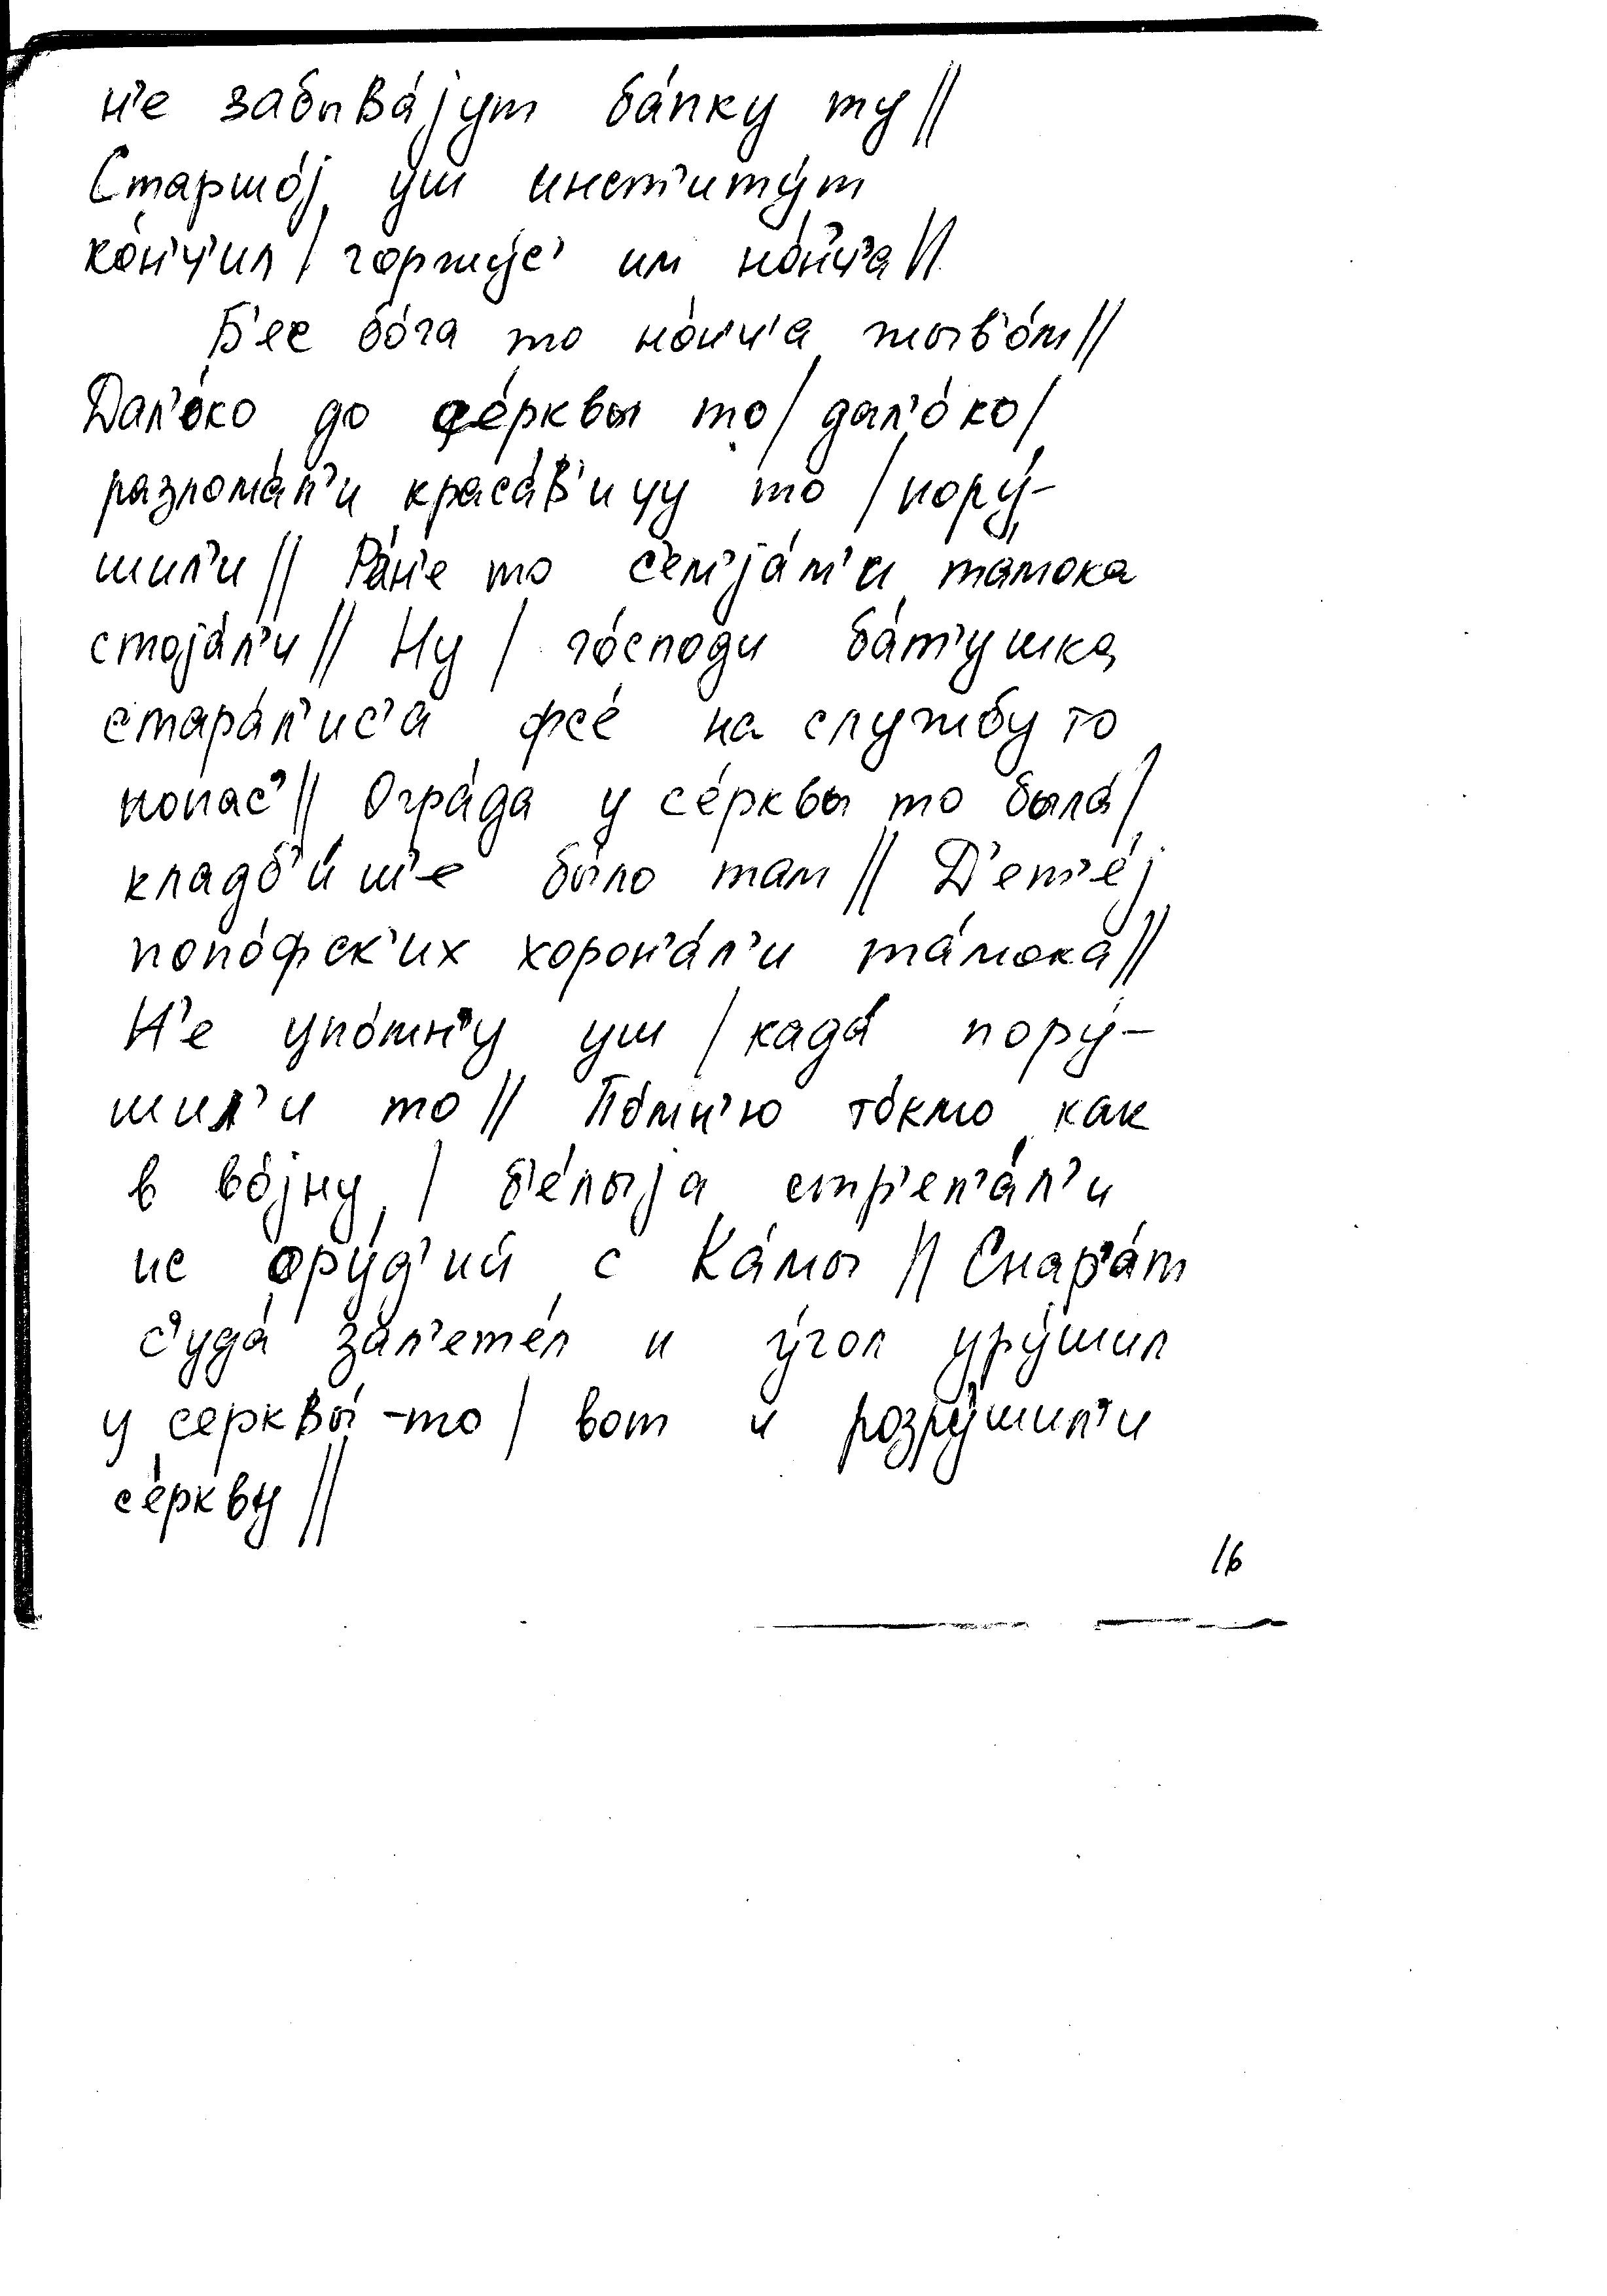 н'е забыва́јут ба́пку ту //
Старшо́ј уш инст'иту́т
ко́н'ч'ил / горжу́с' им но́н'ч'а //
Б'ес бо́га то но́н'ч'а жыв'о́м //
Дал'о́ко до се́рквы то / дал'о́ко /
разлома́л'и краса́в'ицу то / пору́-
шил'и // Ра́н'е то с'ем'ја́м'и тамока
стоја́л'и // Ну / го́споди ба́т'ушка
стара́л'ис'а фсе́ на службу то
попас' // Огра́да у се́рквы то была́ /
кладб'и́ш'е бы́ло там // Д'ет'е́ј
попо́фск'их хорон'а́л'и та́мока //
Н'е упо́мн'у уш / када́ пору́-
шил'и то // По́мн'ю то́кмо как
в во́јну / б'е́лыја стр'ел'а́л'и
ис ору́д'ий с Ка́мы // Снар'а́т
с'уда́ зал'ете́л и у́гол уру́шил
у серквы́-то / вот и розру́шил'и
се́ркву //
16